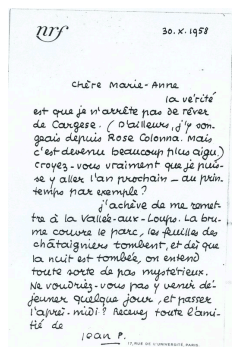 nrf
30.X.1958
Chère Marie-Anne
la vérité
est que je n'arrête pas de rêver
de Cargese. (D'ailleurs, j'y son-
geais depuis Rose Colonna. Mais
c'est devenu beaucoup plus aigu.)
Croyez-vous vraiment que je puis-
se y aller l'an prochain _ au prin-
temps par exemple?
j'achève de me remet-
tre à la Vallée-aux-Loups. La bru-
me couvre le parc, les feuilles des
châtaigniers tombent, et dès que
la nuit est tombée, on entend
toute sorte de pas mystérieux.
Ne voudriez-vous pas y venir dé-
jeuner quelque jour, et passer
l'après-midi? Recevez toute l'ami-
tié de
Jean P.
17, RUE DE L'UNIVERSITÉ, PARIS